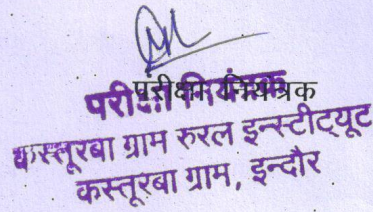 परीक्षा नियंत्रक
परीक्षा नियंत्रक
कस्तूरबा ग्राम रुरल इन्स्टीट्यूट
कस्तूरबा ग्राम, इन्दौर